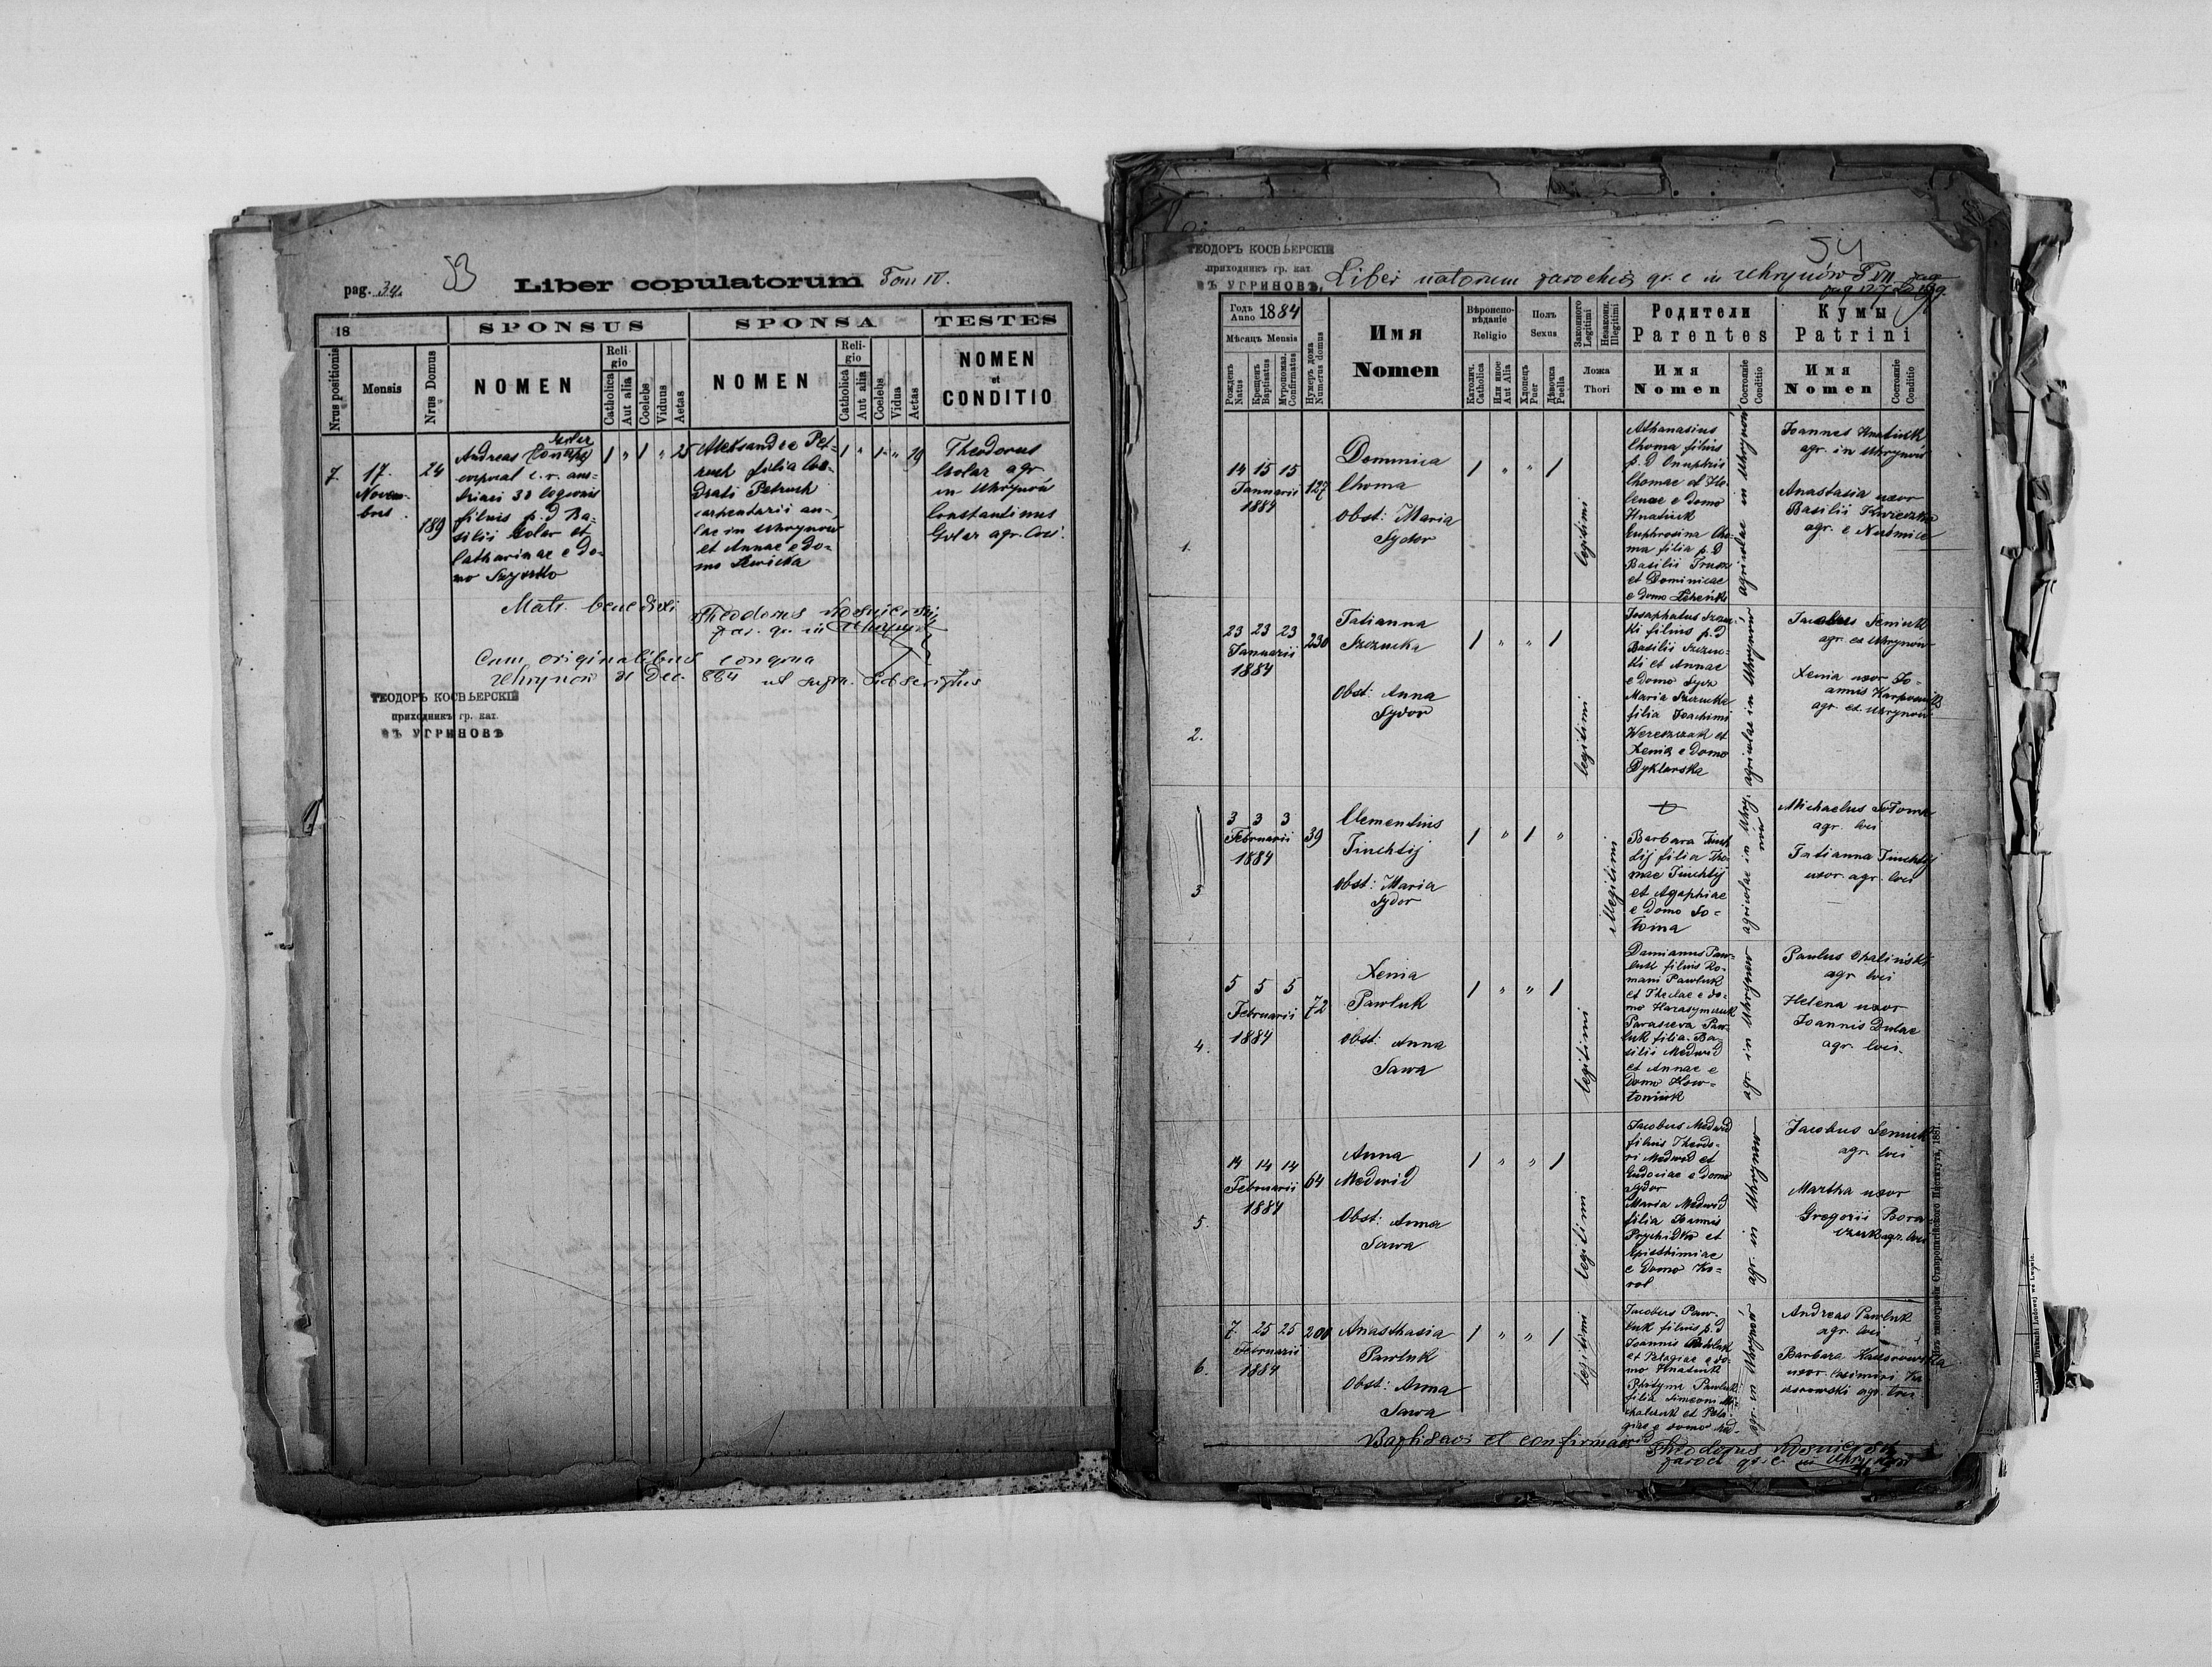 pag. 34.
53
Liber copulatorum Tom IV.
18
SPONSUS
SPONSA
TESTES
Nrus positionis
Mensis
Nrus Domus
NOMEN
Religio
Catholica
Aut alia
Coelebs
Viduus
Aetas
NOMEN
Religio
Catholica
Aut alia
Coelebs
Vidua
Aetas
NOMEN
et
CONDITIO
7.
17.
Novem-
bris
24
189
Andreas
corporal c. r. aus-
triaci 30 legionis
filius p. d Ba-
silii Golar et
Catharinae e do-
mo
1 " 1 " 25
Aleksandra Pet-
ruch filia Con-
drati Petruch
carpentarii au-
lae in Uhrynow
et Annae e do-
mo Lewicka
1 " 1 " 19
Theodorus
Golar agr.
in Uhrynów
Constantinus
Golar agr. loci.
Matr. benedixi Theodorus Kosnierskij
par. gr. in Uhrynów
Cum originalibus congrua
Uhrynów 31 Dec. 884 ut supra. subscriptus
ТЕОДОРЪ КОСВЬЕРСКІЙ
приходникъ гр. кат.
въ УГРИНОВѢ
54
ТЕОДОРЪ КОСВЬЕРСКІЙ
приходникъ гр. кат.
въ УГРИНОВѢ,
Liber natorum parochia gr. c in Uhrynów T. VII
pag 127
Годъ
Anno 1884
Мѣсяцъ Mensis
Рожденъ
Natus
Крещенъ
Baptisatus
Муропомаз.
Confirmatus
Нумеръ дома
Numerus domus
Имя
Nomen
Вѣроисповѣданіе
Religio
Католич.
Catholica
Или иное
Aut Alia
Полъ
Sexus
Хлопецъ
Puer
Дѣвочка
Puella
Законного
Legitimi
Незаконн.
Illegitimi
Ложа
Thori
Родители
Parentes
Имя
Nomen
Состояніе
Conditio
Кумы
Patrini
Имя
Nomen
Состояніе
Conditio
1.
14 15 15
Januarii
1884
127
Dominica
Choma
Obst: Maria
Sydor
1 " " 1
legitimi
Athanasius
Choma filius
p. d Onuphrii
Chomae et He-
lenae e domo
Hnatiuk
Euphrosina Cho-
ma filia p. d
Basilii Trusz
et Dominicae
e domo
agricolae in Uhrynów
Joannes Hnatiuk
agr. in Uhrynów
Anastasia uxor
Basilii
agr. e
2.
23 23 23
Januarii
1884
230
Tatianna
Szczucka
Obst: Anna
Sydor
1 " " 1
legitimi
Josaphatus Szczuc-
ki filius p. d
Basilii Szczuc-
ki et Annae
e domo Sydor
Maria Szczucka
filia Joachimi
Wereszczak et
Xenia e domo
Dyklarska
agricolae in Uhrynów
Jacobus Semiuk
agr. ex Uhrynów
Xenia uxor Jo-
annis Karpowicz
agr. ex Uhrynów
3
3 3 3
Februarii
1884
39
Clementius
Tiuchtij
Obst: Maria
Sydor
1 " 1 "
illegitimi
Barbara Tiuch-
tij filia Tho-
mae Tiuchtij
et Agaphiae
e domo So-
toma
agricolae in Uhry-
nów
Michaelus Sotoma
agr. loci
Tatianna Tiuchtij
uxor agr. loci
4.
5 5 5
Februarii
1884
72
Xenia
Pawluk
Obst: Anna
Sawa
1 " " 1
legitimi
Damianus Paw-
luk filius Ro-
mani Pawluk
et Theclae e do-
mo Harasymczuk
Parasceva Paw-
luk filia Ba-
silii Medwid
et Annae e
domo How-
toniuk
agr. in Uhrynow
Paulus Chaliński
agr. loci
Helena uxor
Joannis Dulac
agr. loci.
5.
14 14 14
Februarii
1884
64
Anna
Medwid
Obst: Anna
Sawa
1 " " 1
legitimi
Jacobus Medwid
filius Theodo-
ri Medwid et
Eudociae e domo
Sydor
Maria Medwid
filia Joannis
Prychidko et
Episthimiae
e domo Ko-
rol
agr. in Uhrynow
Jacobus Semiuk
agr. loci
Martha uxor
Gregorii Bora-
czuk agr. loci
6.
7 25 25
Februarii
1884
200
Anasthasia
Pawluk
Obst: Anna
Sawa
1 " " 1
legitimi
Jacobus Paw-
luk filius p. d
Joannis Pawluk
et Pelagiae e do-
mo Hnatiuk
Photyna Pawluk
filia Simeoni Mi-
chalczuk et Pela-
giae e domo Med-
wid
agr. in Uhrynów
Andreas Pawluk
agr. loci
Barbara Kaczorowska
uxor Casimiri Ka-
czorowski agr. loci
Baptisavi et confirmavi Theodorus Kosnierskij
paroch gr. c in Uhrynów
Изъ типографіи Ставропигійского Института, 1881.